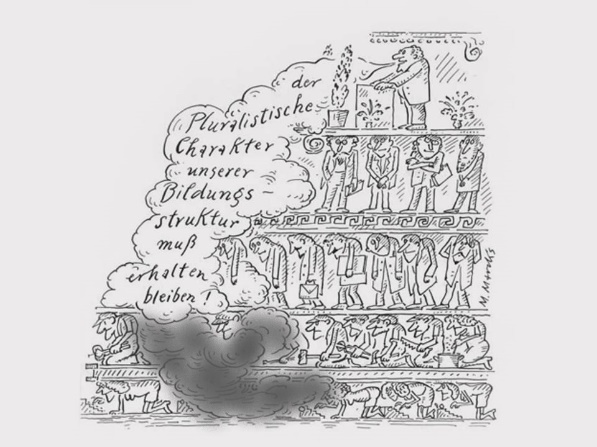 der
Pluralistische
Charakter
unserer
Bildungs-
struktur
muß
erhalten
bleiben!
M. Marcks